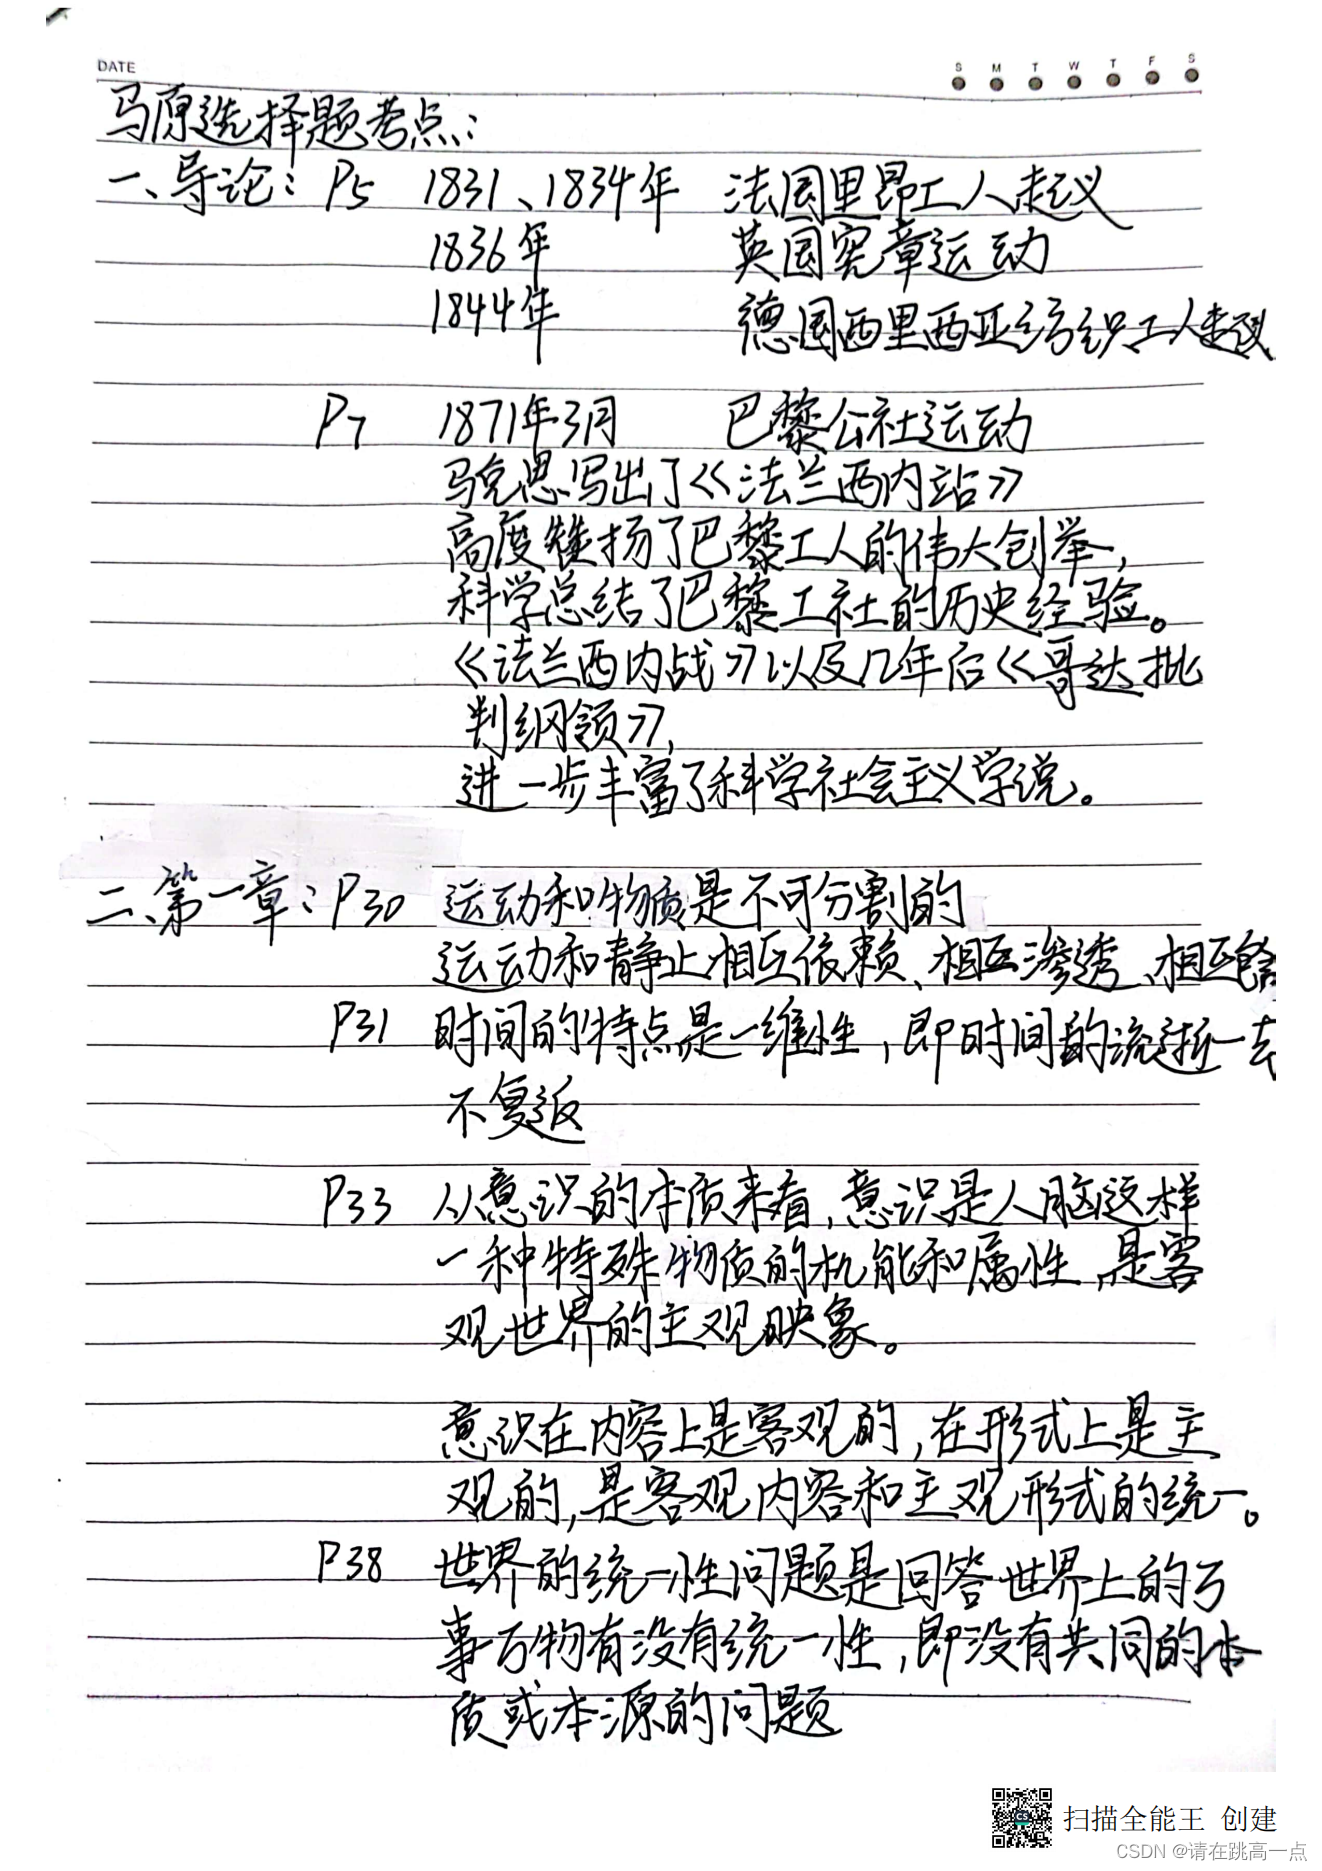 DATE
S M T W T F S
马原选择题考点:
一、导论: P5 1831、1834年 法国里昂工人起义
1836年 英国宪章运动
1844年 德国西里西亚纺织工人起义
P7 1871年3月 巴黎公社运动
马克思写出了《法兰西内站》
高度赞扬了巴黎工人的伟大创举,
科学总结了巴黎工社的历史经验。
《法兰西内战》以及几年后《哥达批
判纲领》,
进一步丰富了科学社会主义学说。
二、第一章: P30 运动和物质是不可分割的
运动和静止相互依赖、相互渗透、相互
P31 时间的特点是一维性,即时间的流逝一去
不复返
P33 从意识的本质来看,意识是人脑这样
一种特殊物质的机能和属性,是客
观世界的主观映象。
意识在内容上是客观的,在形式上是主
观的,是客观内容和主观形式的统一。
P38 世界的统一性问题是回答世界上的万
事万物有没有统一性,即没有共同的本
质或本源的问题
扫描全能王 创建
CSDN @请在跳高一点